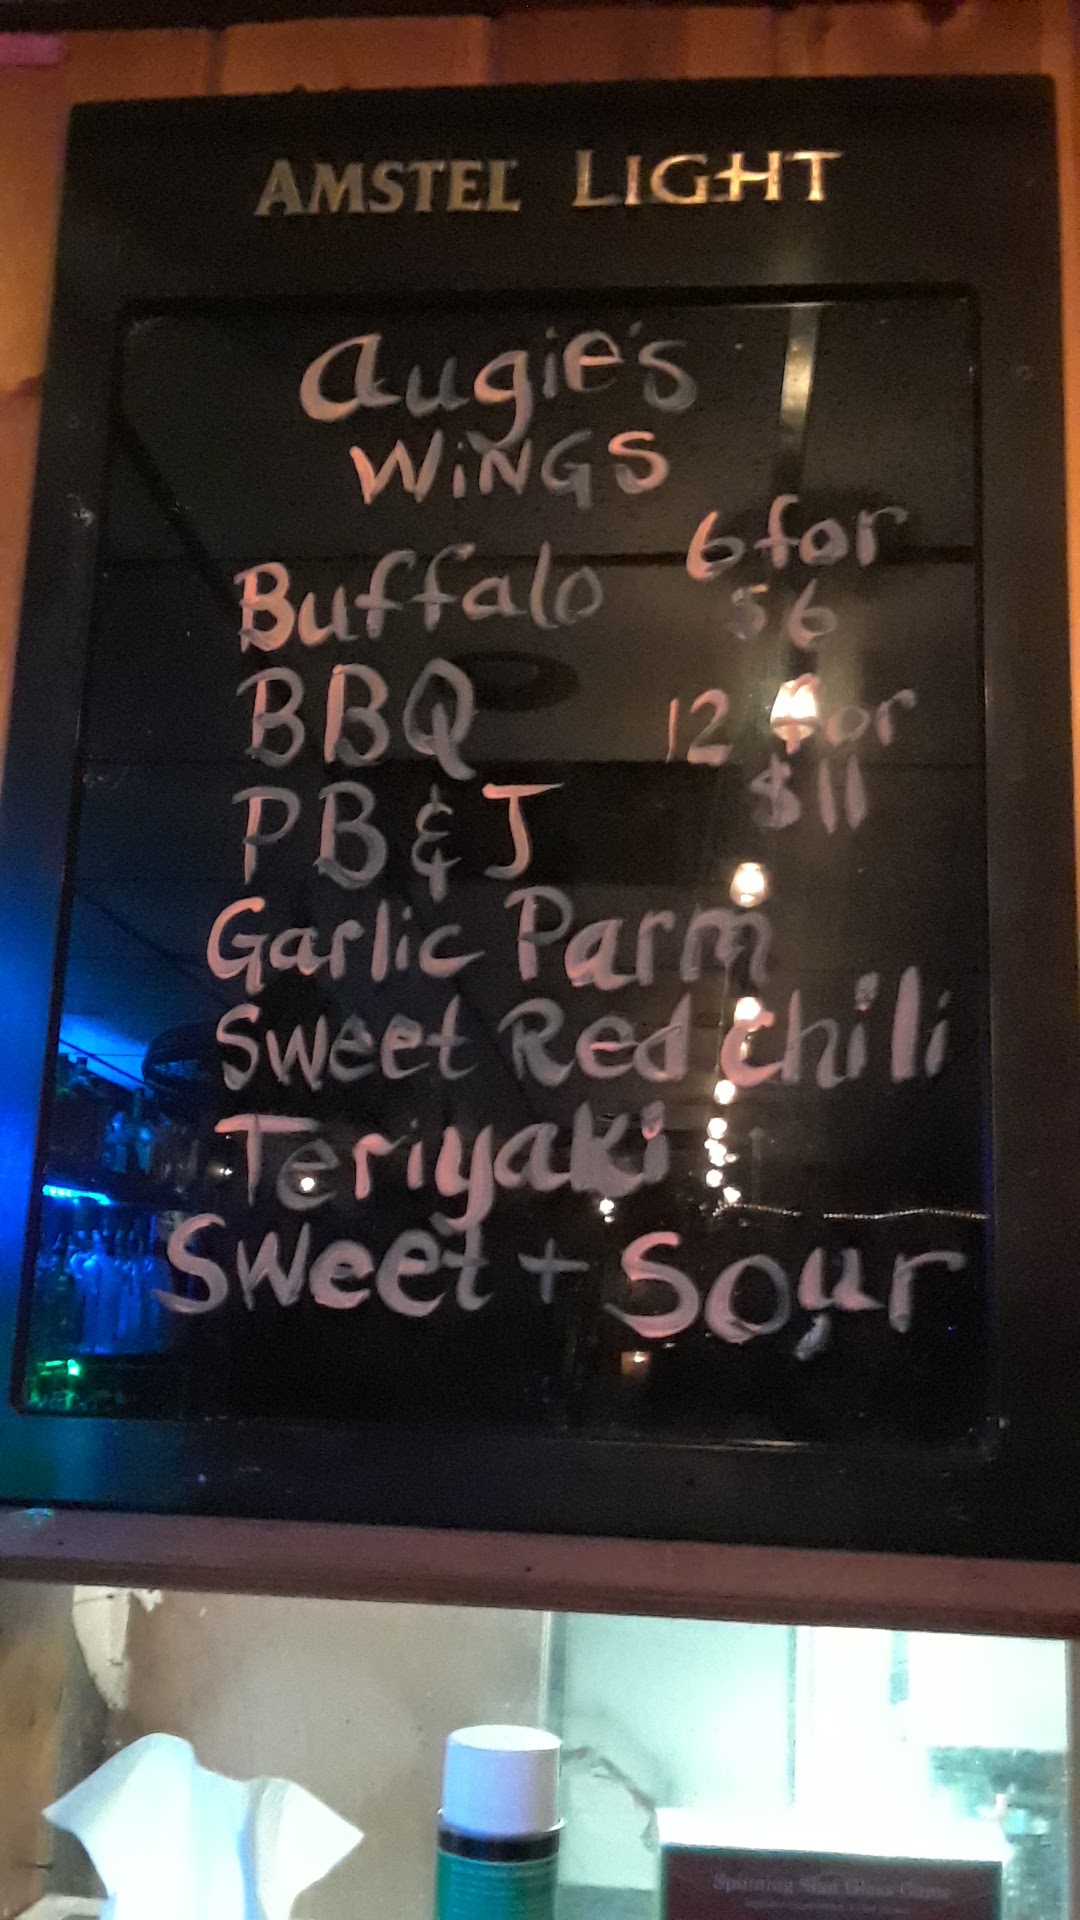 AMSTEL LIGHT
Augie's
WiNGS
Buffalo 6 for
$6
BBQ 12 for
$11
PB & J
Garlic Parm
Sweet Red Chili
Teriyaki
Sweet + Sour
Spinning Shot Glass Game